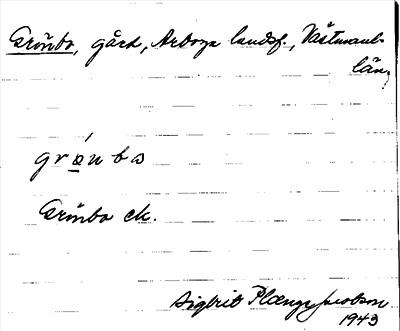 Grönbo, gård, Arboga landsf., Västmanl.
län,
grœ́nbo
Grönbo ek.
Sigbrit Plænge Jacobson
1943